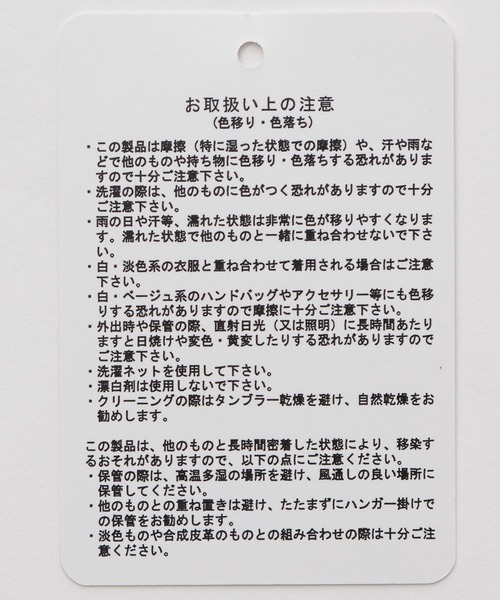 お取扱い上の注意
(色移り・色落ち)
・この製品は摩擦（特に湿った状態での摩擦）や、汗や雨な
どで他のものや持ち物に色移り・色落ちする恐れがありま
すので十分ご注意下さい。
・洗濯の際は、他のものに色がつく恐れがありますので十分
ご注意下さい。
・雨の日や汗等、濡れた状態は非常に色が移りやすくなりま
す。濡れた状態で他のものと一緒に重ね合わせないで下さ
い。
・白・淡色系の衣服と重ね合わせて着用される場合はご注意
下さい。
・白・ベージュ系のハンドバッグやアクセサリー等にも色移
りする恐れがありますので摩擦に十分ご注意下さい。
・外出時や保管の際、直射日光（又は照明）に長時間あたり
ますと日焼けや変色・黄変したりする恐れがありますので
ご注意下さい。
・洗濯ネットを使用して下さい。
・漂白剤は使用しないで下さい。
・クリーニングの際はタンブラー乾燥を避け、自然乾燥をお
勧めします。
この製品は、他のものと長時間密着した状態により、移染す
るおそれがありますので、以下の点にご注意ください。
・保管の際は、高温多湿の場所を避け、風通しの良い場所に
保管してください。
・他のものとの重ね置きは避け、たたまずにハンガー掛けで
の保管をお勧めします。
・淡色ものや合成皮革のものとの組み合わせの際は十分ご注
意ください。